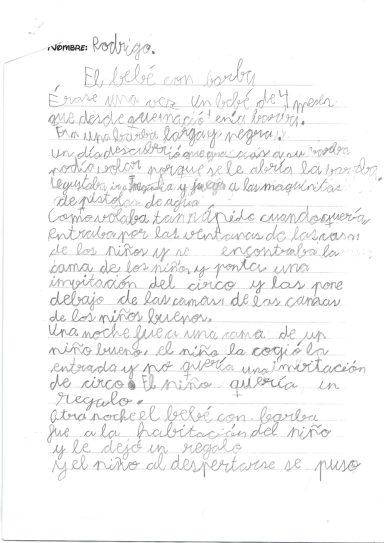 NOMBRE: Rodrigo.
El bebé con barba
Érase una vez un bebé de 4 meses
que desde que nació tenía barba.
Era una barba larga y negra.
un día descubrió que gracias a su barba
podía volar porque se le abría la barba.
Le gustaba ir a y jugar a las maquinitas
de pistolas de agua
Como volaba tan rápido cuando quería
entraba por las ventanas de las casas
de los niños y se encontraba la
cama de los niños y ponía una
invitación del circo y las pone
debajo de las camas de las camas
de los niños buenos.
Una noche fue a una cama de un
niño bueno. el niño la cogió la
entrada y no quería una invitación
de circo. El niño quería un
regalo.
Otra noche el bebé con barba
fue a la habitación del niño
y le dejó un regalo
y el niño al despertarse se puso